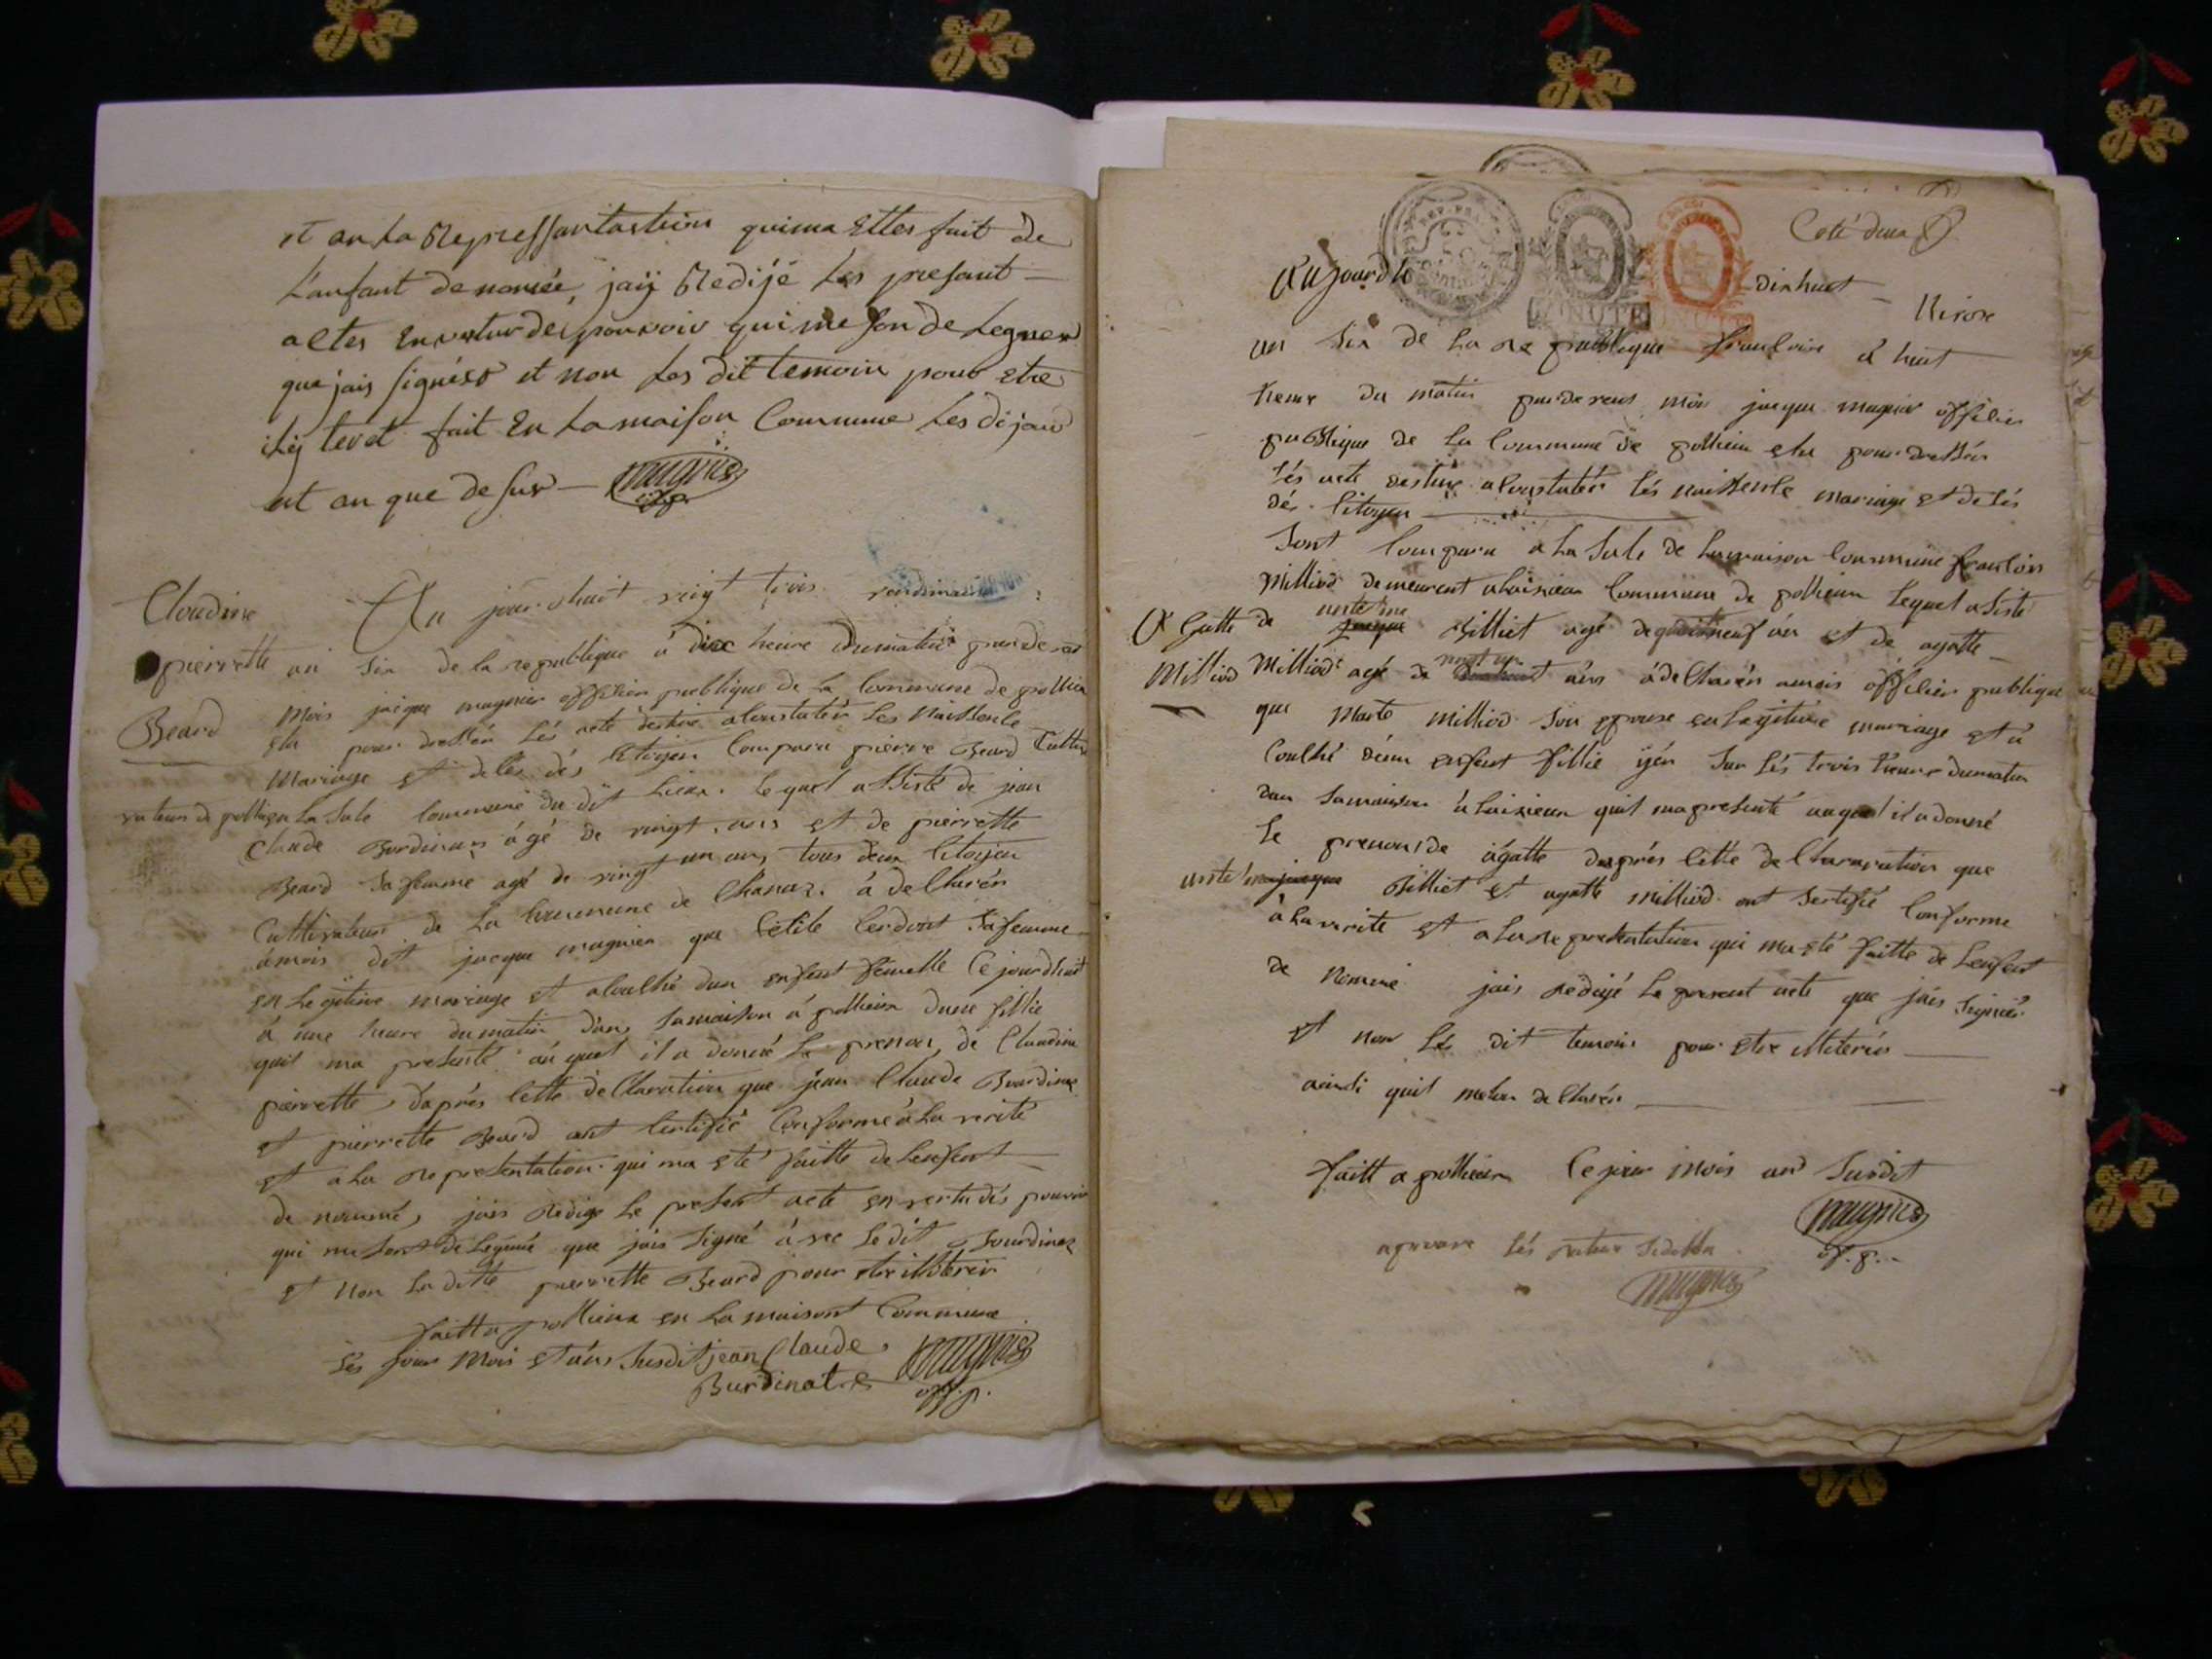 et an la Repressantastion quima ettes fait de
L'anfant denomée, jaÿ Redijé Les presant
actes En vertur des pouvoir qui me son de Legner
que jais signéso et non Les dit temoin pour etre
iLÿ teret fait En La maison Commune Les dijour
et an que de sus — maynier
off. p.
Claudine
pierrette
Beard
Au jourdhuit vingt trois vendimaire
an six de la republique à dixe heure dumatin pardevan
Mois jacque maynier offisier publique de La Commune de pollieu
elu pour dressér Lés acte destiné a Constatér Les Naissence
Mariage et delés dés Citoyen Compara pierre Beard Culti
vateur de pollieu La Sale Commune du dit Lieux. Lequel assisté de jean
Claude Bordinat âgé de vingt ans et de pierrette
Beard Sa femme agé de vingt un ans, tous deux Citoyen
Cultivateur de La Commune de Chanaz. à de Clarér
àmois dit jacque maynier que Cetite Cerdont Safemme
en Legitime mariage et a Couché dun enfent femelle Ce jourdhuit
à une heure dumatin dans Samaison à pollieu dune fillie
quil ma presenté auquel il a donné Le prenon de Claudine
pierrette, d'aprés Cette de Claration que jean Claude Bourdinat
et pierrette Beard ont Certifié Conforme à La verité
et à La representation qui ma eté faitte de Lenfent
de nommé, jais redige Le present acte en vertu dés pouvoir
qui me sont delegués que jais Signé àvec Ledit Bourdinat
et non La ditte pierrette Beard pour etre illiterér
faitta pollieu en La maisont Commune
Lés jour Mois et àns Susdit jean Claude maynier
Burdinat off. p.
Coté deux
Aujourdh dixhuit Nivose
an Six de La re publique francoise à huit
heure du matin pardevent moi jacque maynier offisier
publique de La Commune de pollieu elu pour dressér
Lés acte destiné a Constatér Lés naissence mariage et delés
dés Citoyen
Sont Compara a La Sale de Lamaison Commune francois
Milliod demeurent a Commune de pollieu Lequel asisté
de Billiet agé de neuf an et de agatte
Agatte
Milliod
Milliod agé de vingt un ans à de Clarér amois offisier publique
que Marte milliod Son epouse en Legitime mariage et à
Couché déun enfent fillie iyér Sur Lés trois heure dumatin
dan Samaison à quil mapresenté auquel il a donné
Le prenon de àgatte daprés Cette de Claration que
Billiet et agatte milliod ont Sertifié Conforme
à La verite et a La representation qui ma eté faitte de Lenfent
de Nommé jais redigé Le present acte que jais Signér
et non Les dit temoin pour etre illiterér
ainsi quil de Clarér
faitt a pollieu Ce jour Mois an Susdit
maynier
off. p.
aprouve Lés
maynier